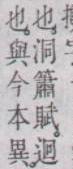 也。洞簫賦。迴
也。與今本異。